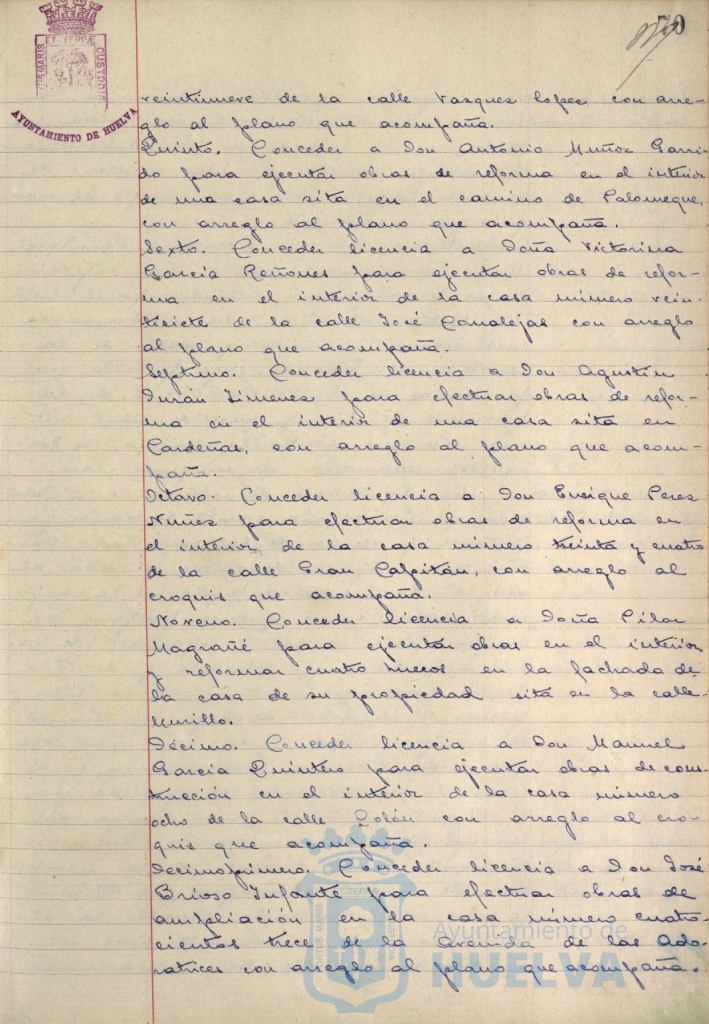 70
PORTUS MARIS ET TERRAE CUSTODIA
AYUNTAMIENTO DE HUELVA
veintinueve de la calle Vazquez Lopez, con arre-
glo al plano que acompaña.
Quinto. Conceder a Don Antonio Muñoz Garri-
do para ejecutar obras de reforma en el interior
de una casa sita en el camino de Palomeque,
con arreglo al plano que acompaña.
Sexto. Conceder licencia a Doña Victorina
Garcia Reñones para ejecutar obras de refor-
ma en el interior de la casa número vein-
tisiete de la calle José Canalejas con arreglo
al plano que acompaña.
Septimo. Conceder licencia a Don Agustín
Durán Jimenez para efectuar obras de refor-
ma en el interior de una casa sita en
Cardeñas, con arreglo al plano que acom-
paña.
Octavo. Conceder licencia a Don Enrique Perez
Nuñez para efectuar obras de reforma en
el interior de la casa número treinta y cuatro
de la calle Gran Capitán, con arreglo al
croquis que acompaña.
Noveno. Conceder licencia a Doña Pilar
Magrañé para ejecutar obras en el interior
y reformar cuatro huecos en la fachada de
la casa de su propiedad sita en la calle
Murillo.
Décimo. Conceder licencia a Don Manuel
Garcia Quintero para ejecutar obras de cons-
trucción en el interior de la casa número
ocho de la calle Colón con arreglo al cro-
quis que acompaña.
Decimoprimero. Conceder licencia a Don José
Brioso Infante para efectuar obras de
ampliación en la casa número cuatro-
cientos trece de la Avenida de las Ado-
ratrices con arreglo al plano que acompaña.
Ayuntamiento de
HUELVA